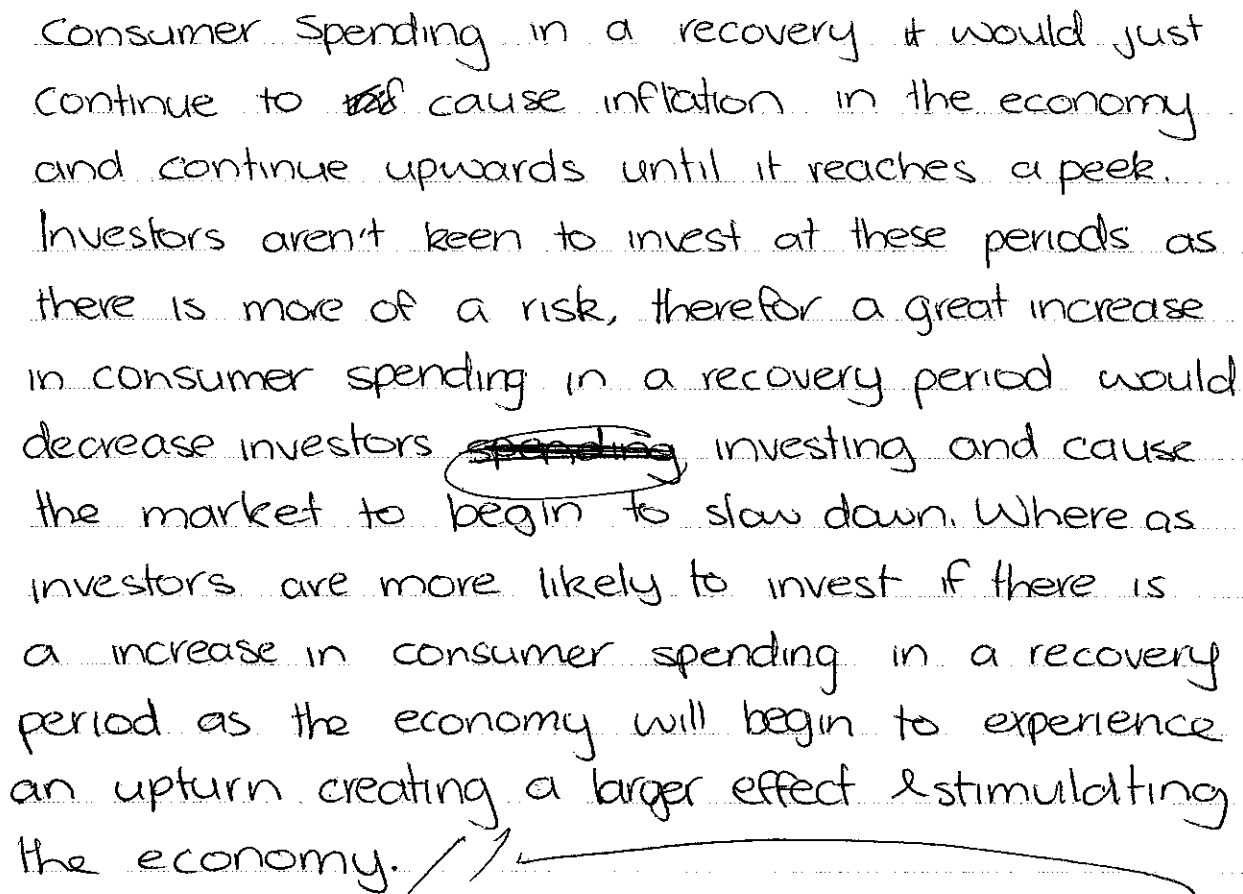 Consumer Spending in a recovery it would just
continue to cause inflation in the economy
and continue upwards until it reaches a peek.
Investors aren't keen to invest at these periods as
there is more of a risk, therefor a great increase
in consumer spending in a recovery period would
decrease investors spending investing and cause
the market to begin to slow down. Where as
investors are more likely to invest if there is
a increase in consumer spending in a recovery
period as the economy will begin to experience
an upturn creating a larger effect &stimulatting
the economy.